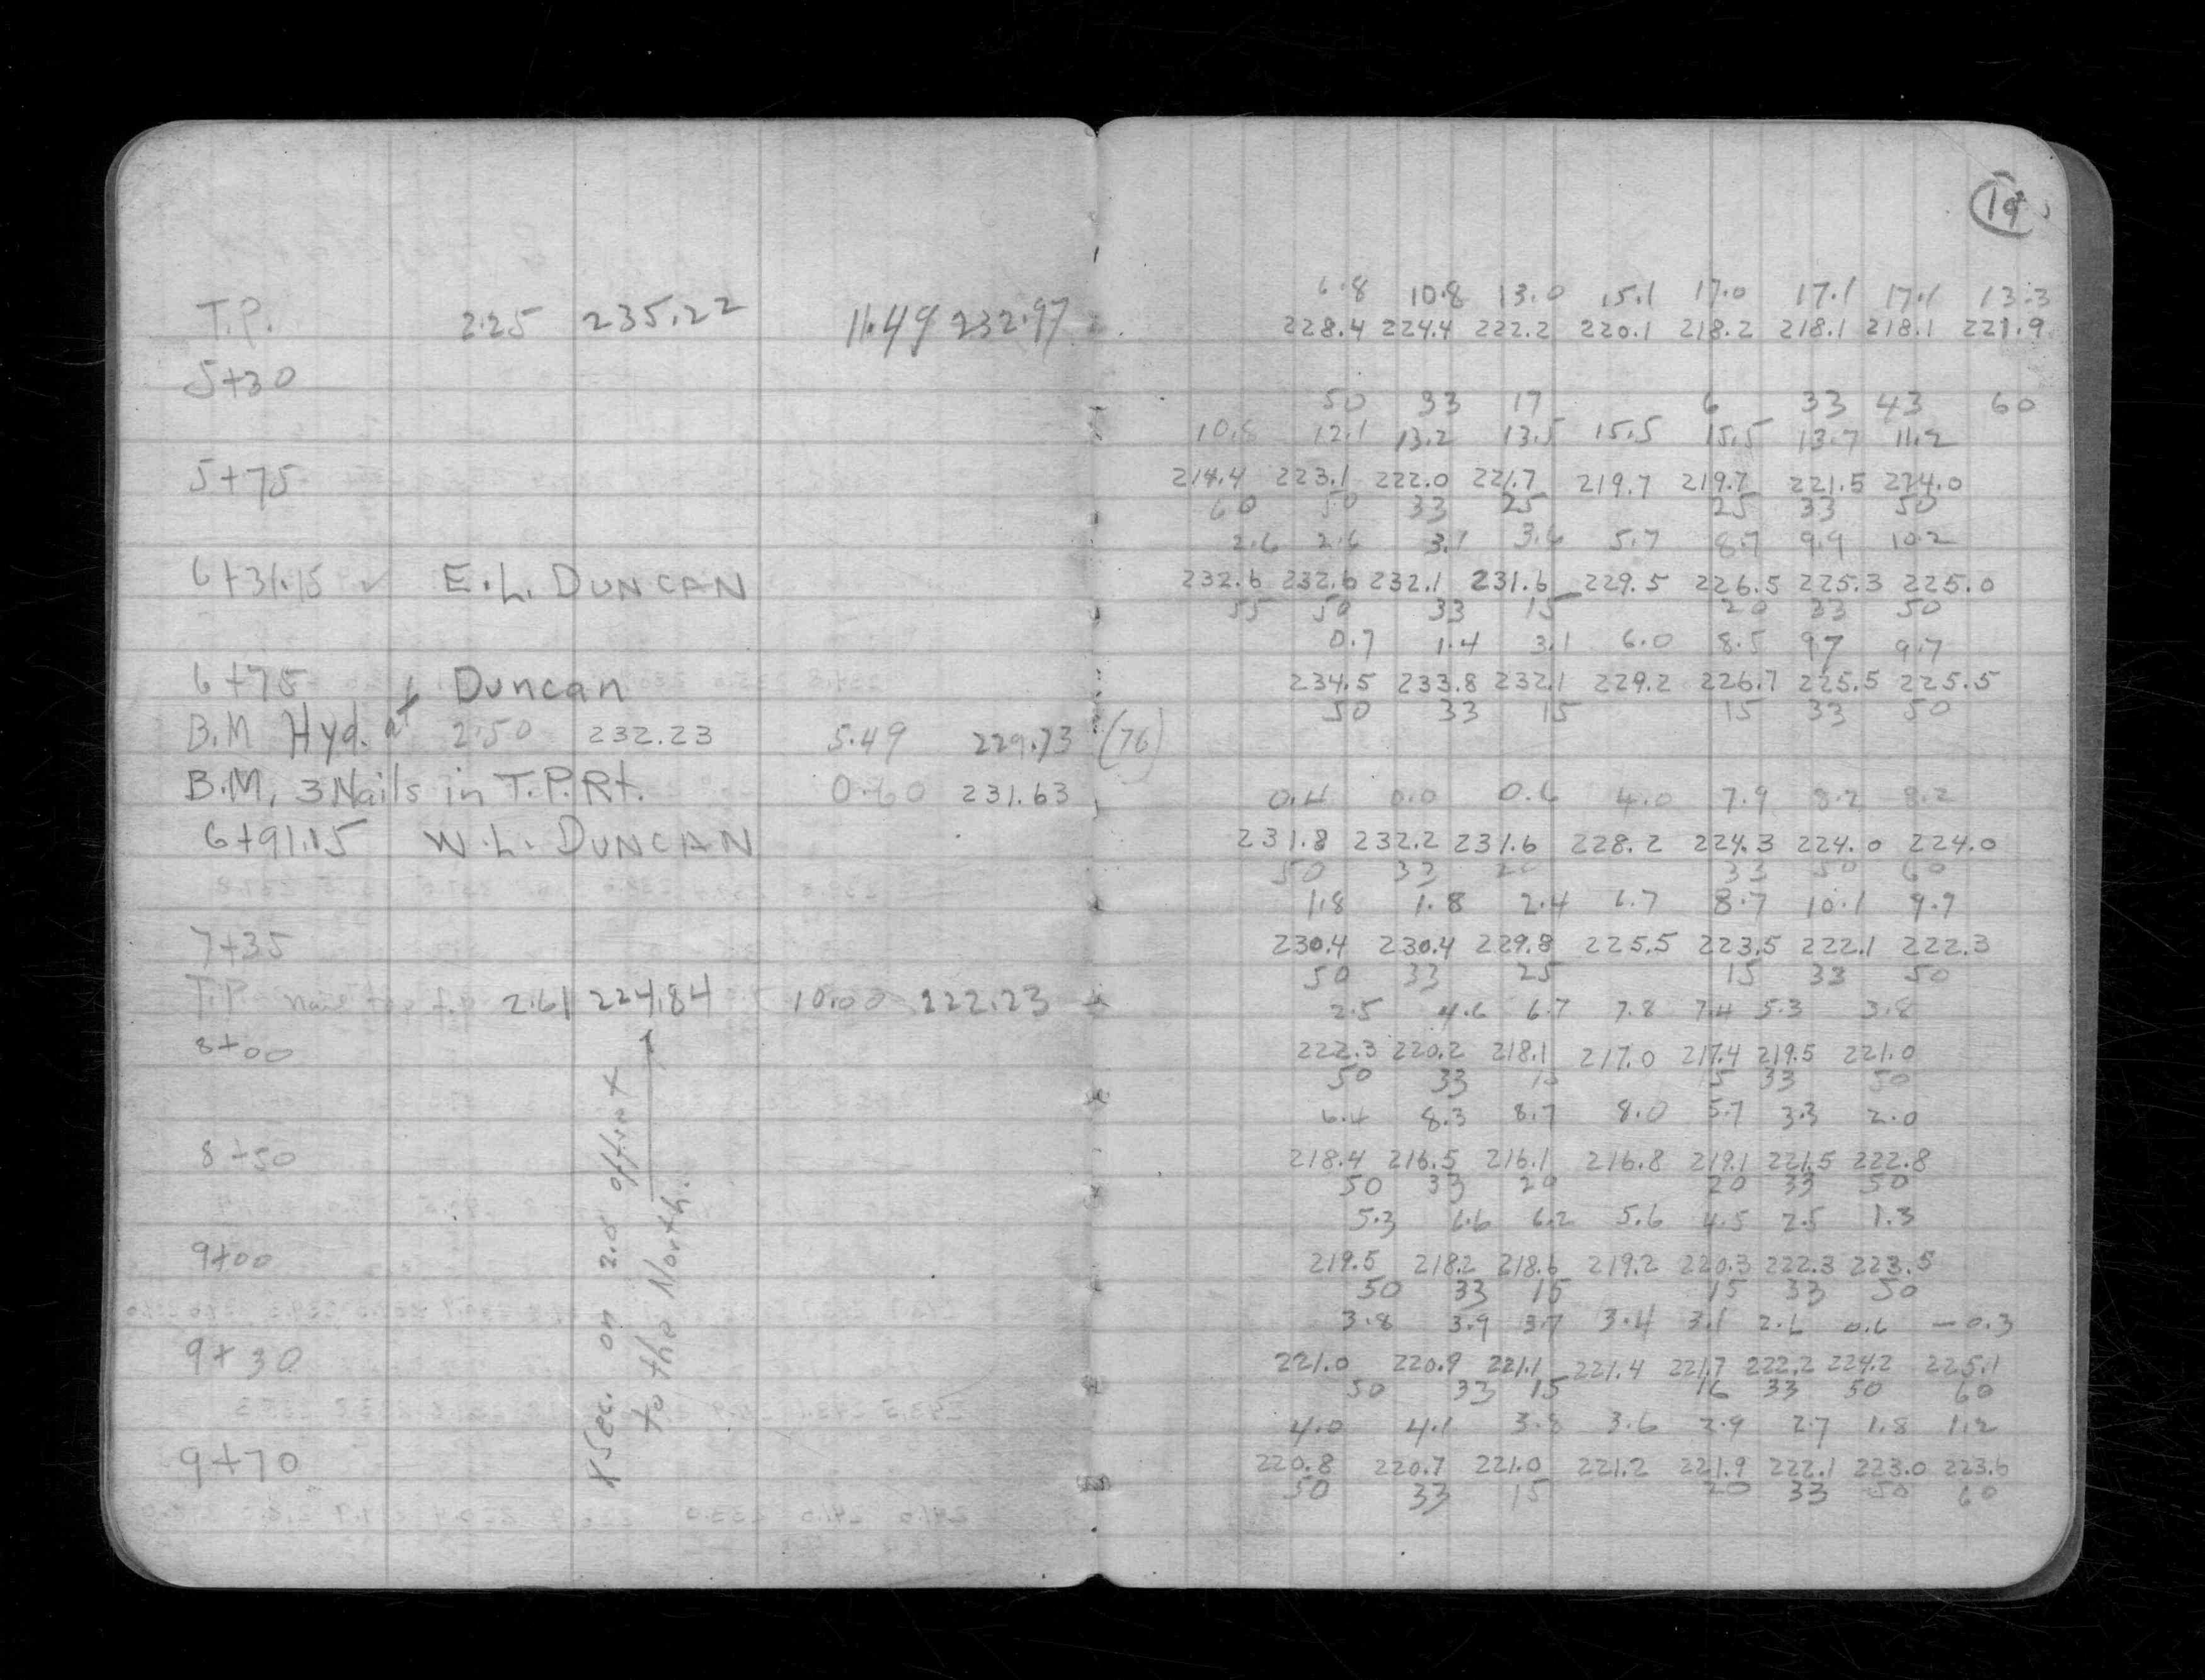 T.P. 2.25 235.22 11.49 232.97
5+30
5+75
6+31.15 ✓ E.L. DUNCAN
6+75 ¢ Duncan
B.M Hyd. at 2.50 232.23 5.49 229.73 (76)
B.M, 3 Nails in T.P. Rt. 0.60 231.63
6+91.15 W.L. DUNCAN
7+35
T.P. 2.61 224.84 10.00 222.23
8+00
8+50
9+00
9+30
9+70
XSec. on 20 offset
to the North.
19
6.8 10.8 13.0 15.1 17.0 17.1 17.1 13.3
228.4 224.4 222.2 220.1 218.2 218.1 218.1 221.9
50 33 17 6 33 43 60
10.8 12.1 13.2 13.5 15.5 15.5 13.7 11.2
214.4 223.1 222.0 221.7 219.7 219.7 221.5 224.0
60 50 33 25 25 33 50
2.6 2.6 3.1 3.6 5.7 8.7 9.9 10.2
232.6 232.6 232.1 231.6 229.5 226.5 225.3 225.0
55 50 33 15 20 33 50
0.7 1.4 3.1 6.0 8.5 9.7 9.7
234.5 233.8 232.1 229.2 226.7 225.5 225.5
50 33 15 15 33 50
0.4 0.0 0.6 4.0 7.9 8.2 8.2
231.8 232.2 231.6 228.2 224.3 224.0 224.0
50 33 20 33 50 60
1.8 1.8 2.4 6.7 8.7 10.1 9.9
230.4 230.4 229.8 225.5 223.5 222.1 222.3
50 33 25 15 33 50
2.5 4.6 6.7 7.8 7.4 5.3 3.8
222.3 220.2 218.1 217.0 217.4 219.5 221.0
50 33 15 15 33 50
6.4 8.3 8.7 8.0 5.7 3.3 2.0
218.4 216.5 216.1 216.8 219.1 221.5 222.8
50 33 20 20 33 50
5.3 6.6 6.2 5.6 4.5 2.5 1.3
219.5 218.2 218.6 219.2 220.3 222.3 223.5
50 33 15 15 33 50
3.8 3.9 3.7 3.4 3.1 2.6 0.6 -0.3
221.0 220.9 221.1 221.4 221.7 222.2 224.2 225.1
50 33 15 16 33 50 60
4.0 4.1 3.8 3.6 2.9 2.7 1.8 1.2
220.8 220.7 221.0 221.2 221.9 222.1 223.0 223.6
50 33 15 20 33 50 60